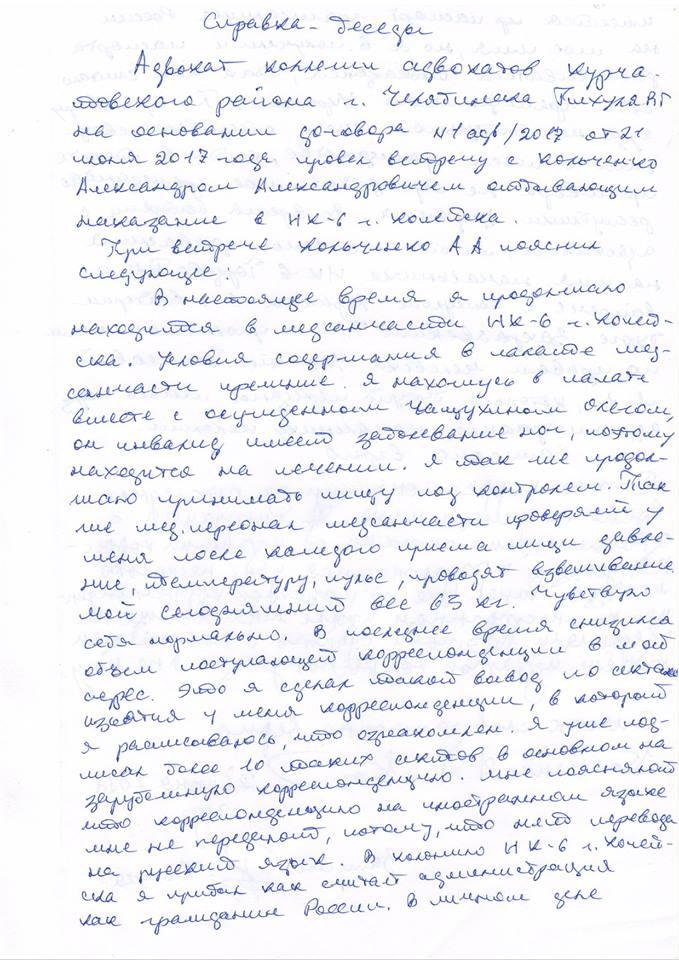 Справка-беседы
Адвокат коллегии адвокатов Курча-
товского района г. Челябинска Пихуля В.Г
на основании договора N1адв/2017 от 21
июня 2017 года провел встречу с Кольченко
Александром Александровичем отбывающим
наказание в ИК-6 г. Копейска.
При встрече Кольченко А.А. пояснил
следующее:
В настоящее время я продолжаю
находится в медсанчасти ИК-6 г. Копей-
ска. Условия содержания в палате мед-
санчасти прежние. Я нахожусь в палате
вместе с осужденным Чащухиным Олегом,
он инвалид имеет заболевание ног, поэтому
находится на лечении. Я так же продол-
жаю принимать пищу под контролем. Так
же мед.персонал медсанчасти проверяет у
меня после каждого приема пищи давле-
ние, температуру, пульс, проводят взвешивание
мой сегодняшний вес 63 кг. Чувствую
себя нормально. В последнее время снизился
объем поступающей корреспонденции в мой
адрес. Это я сделал такой вывод по актам
изъятия у меня корреспонденции, в которой
я расписываюсь, что ознакомлен. Я уже под-
писал более 10 таких актов в основном на
зарубежную корреспонденцию. Мне поясняют
что корреспонденцию на иностранном языке
мне не передают, потому, что нет перевода
на русский язык. В колонию ИК-6 г. Копей-
ска я прибыл как считает администрация
как гражданин России. В личном деле